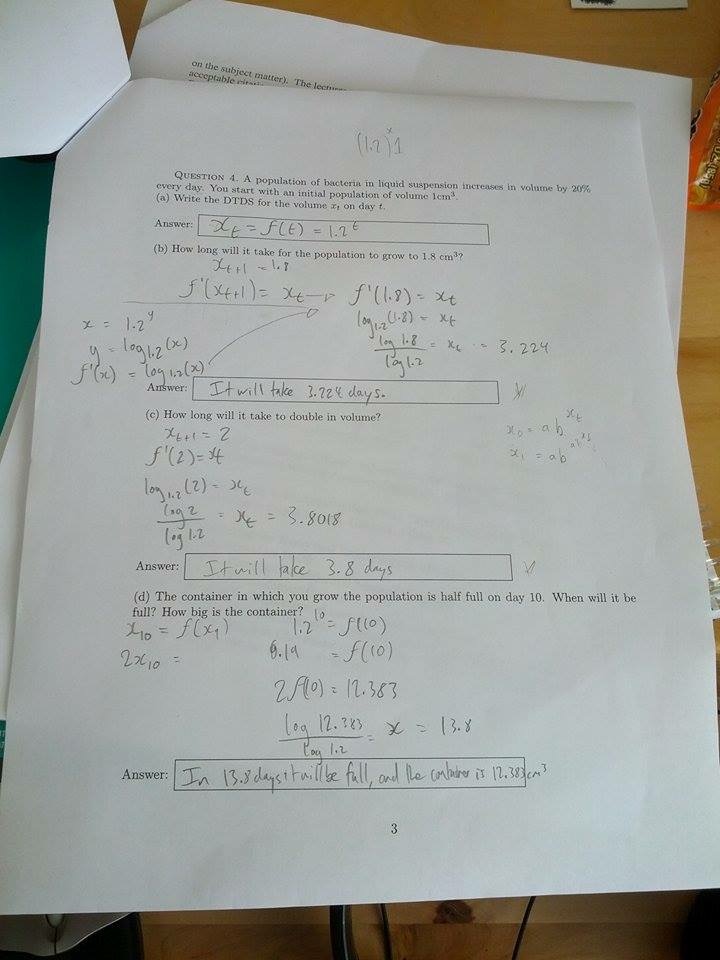 on the subject matter). The lecture
acceptable
(1.2)^x 1
QUESTION 4. A population of bacteria in liquid suspension increases in volume by 20%
every day. You start with an initial population of volume 1cm³.
(a) Write the DTDS for the volume x_t on day t.
Answer: x_t = f(t) = 1.2^t
(b) How long will it take for the population to grow to 1.8 cm³?
x_{t+1} = 1.8
f'(x_{t+1}) = x_t → f'(1.8) = x_t
x = 1.2^y
log_{1.2}(1.8) = x_t
y = log_{1.2}(x)
log 1.8 / log 1.2 = x_t = 3.224
f'(x) = log_{1.2}(x)
Answer: It will take 3.224 days.
(c) How long will it take to double in volume?
x_{t+1} = 2
x_0 = ab^{x_t}
f'(2) = x_t
x_1 = ab
log_{1.2}(2) = x_t
log 2 / log 1.2 = x_t = 3.8018
Answer: It will take 3.8 days
(d) The container in which you grow the population is half full on day 10. When will it be
full? How big is the container?
x_{10} = f(x_9) 1.2^{10} = f(10)
2x_{10} = 6.19 = f(10)
2f(10) = 12.383
log 12.383 / log 1.2 = x = 13.8
Answer: In 13.8 days it will be full, and the container is 12.383 cm³
3